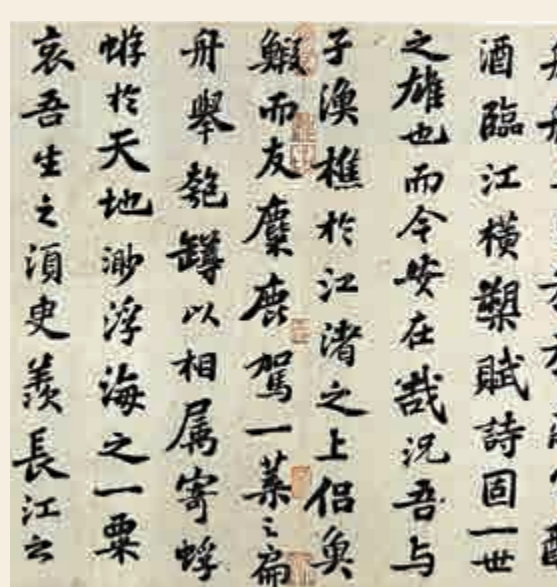 酒臨江橫槊賦詩固一世
之雄也而今安在哉況吾与
子漁樵於江渚之上侶魚
鰕而友麋鹿駕一葉之扁
舟舉匏罇以相属寄蜉
蝣於天地渺浮海之一粟
哀吾生之須臾羨長江之